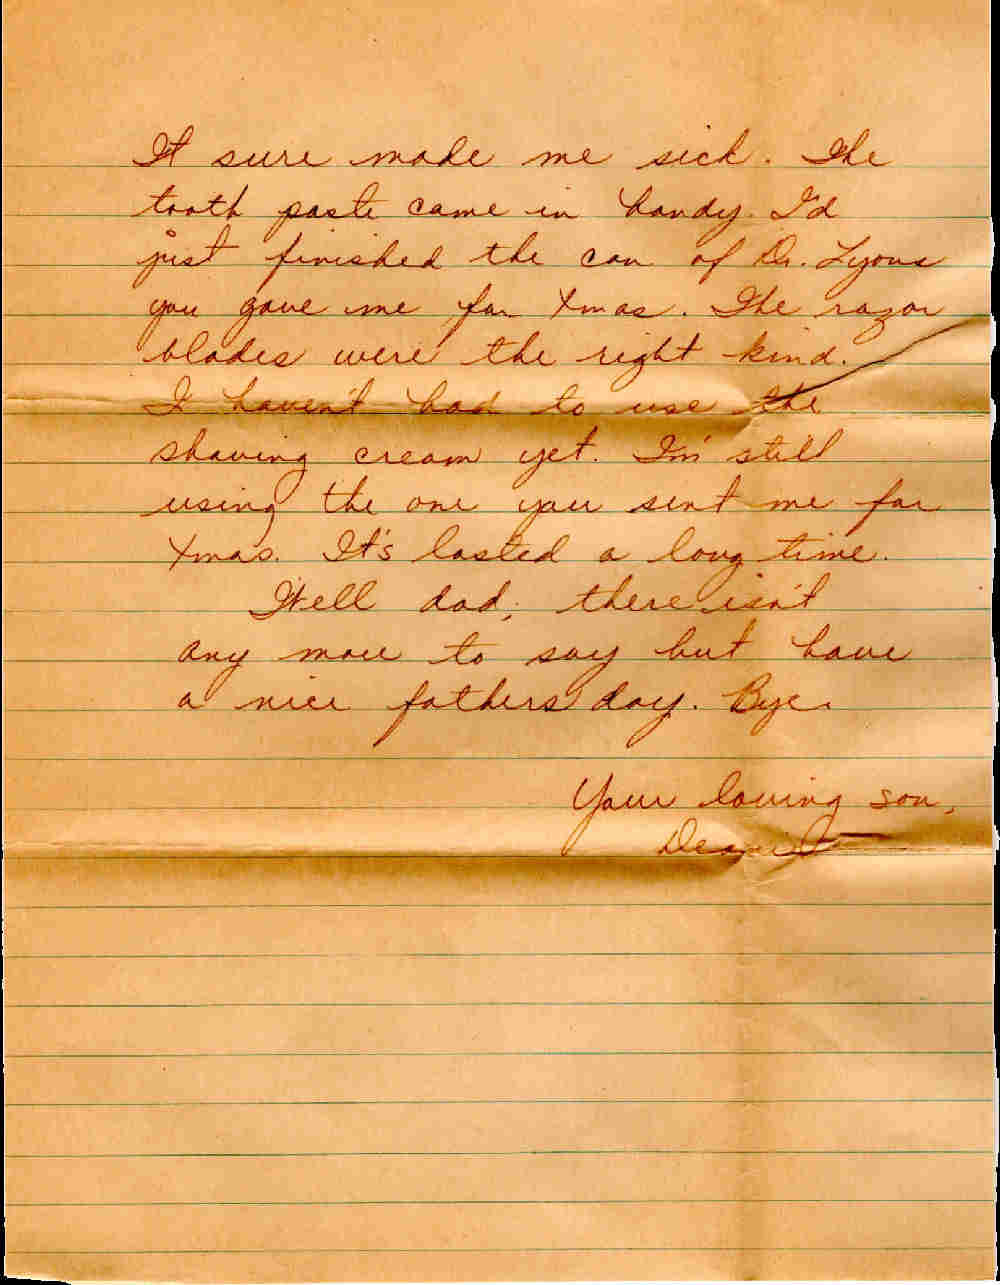 It sure made me sick. The
tooth paste came in handy. I'd
just finished the can of Dr. Lyons
you gave me for Xmas. The razor
blades were the right kind.
I haven't had to use the
shaving cream yet. I'm still
using the one you sent me for
Xmas. It's lasted a long time.
Well dad, there isn't
any more to say but have
a nice fathers day. Bye.
Your loving son,